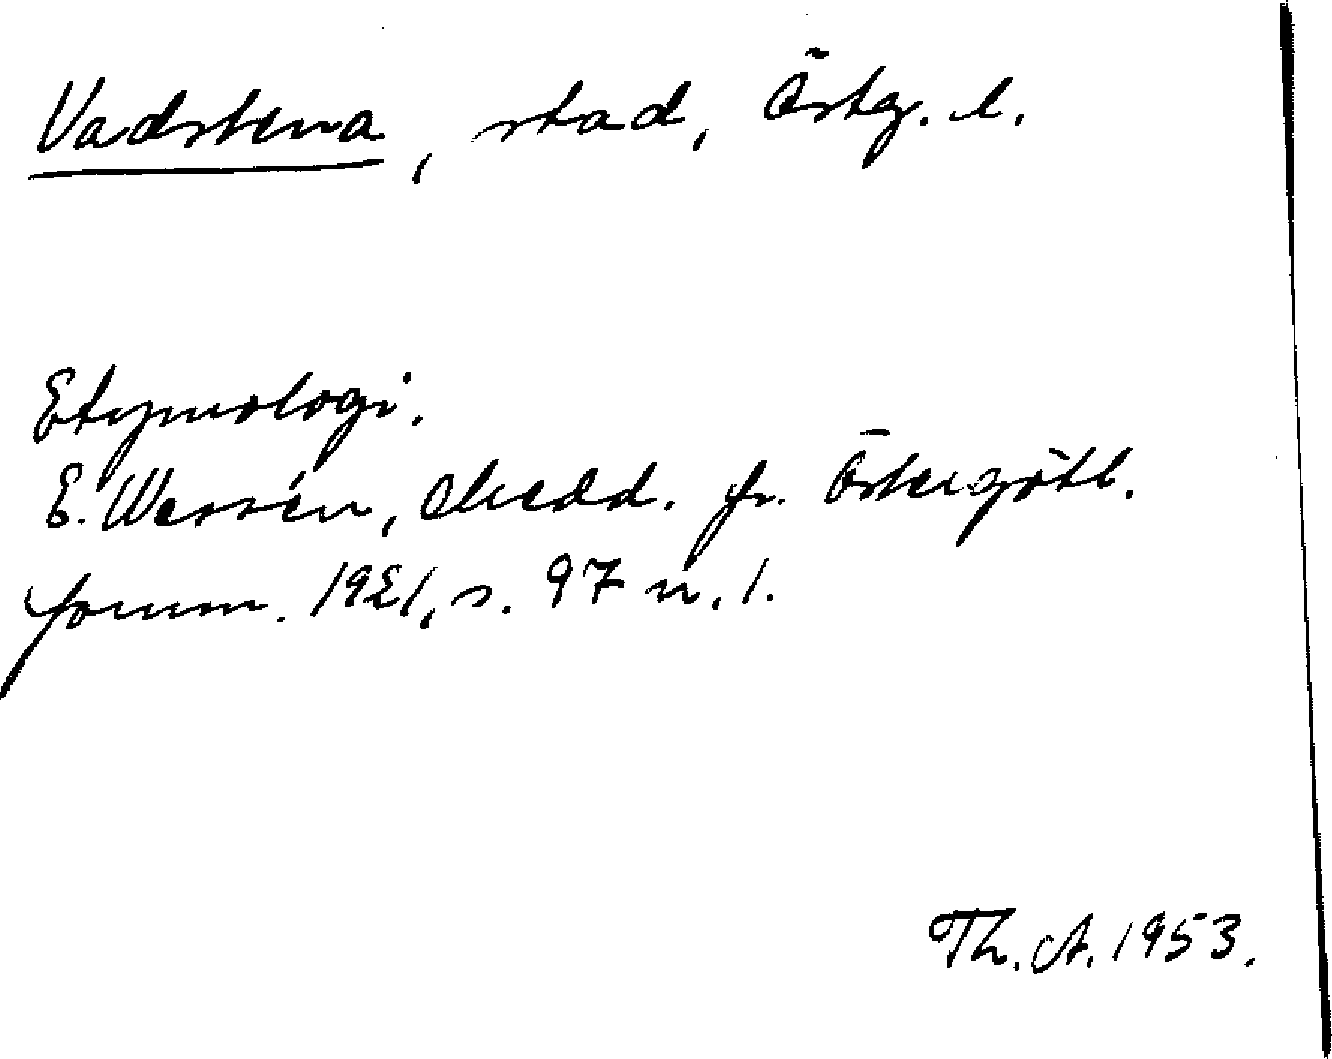 Vadstena, stad, Östg. l.
Etymologi.
E. Wessén, Medd. fr. Östergötl.
fornm. 1921, s. 97 n. 1.
Th. A. 1953.